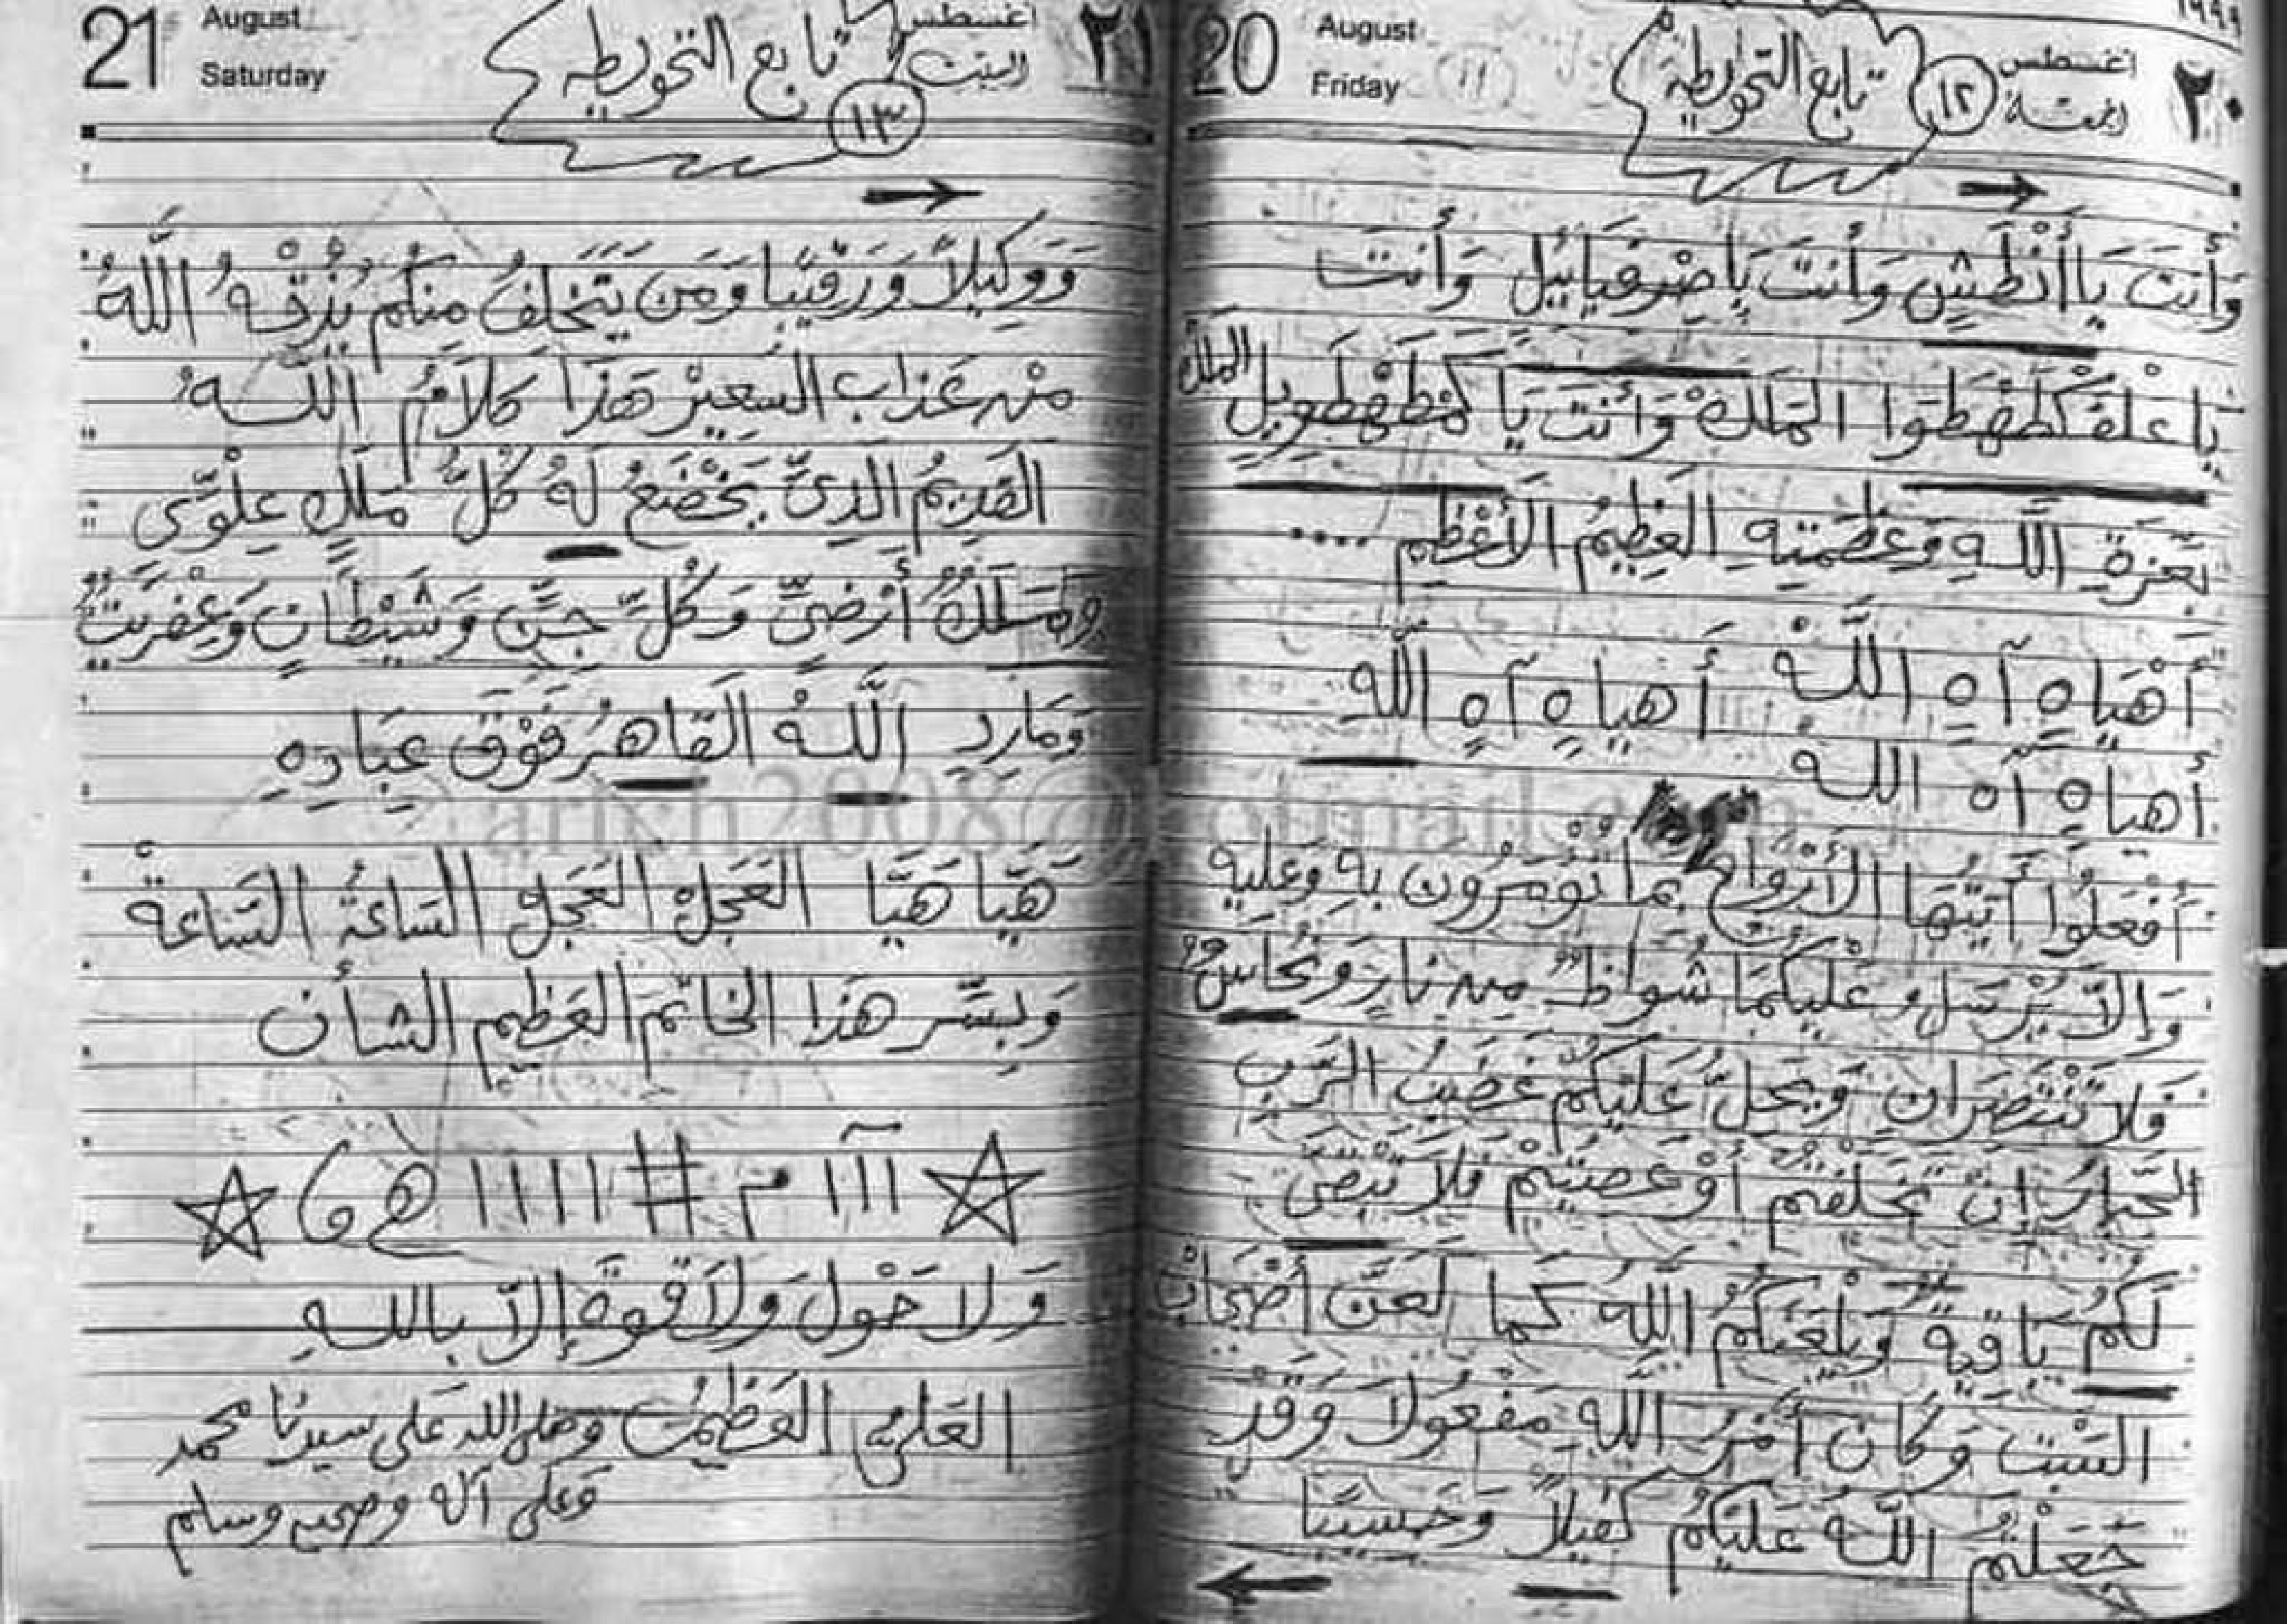 ١٩٩٩
20
August
Friday
١١
تابع التحويطة
١٢
أغسطس
الجمعة
٢٠
وَأَنتَ يَا أَنْطَشٍ وَأَنتَ يَا صَرْفَيَائِيلُ وَأَنتَ
يَا الْمَلَكْ وَأَنتَ يَا الملك
بَعِزَةِ اللهِ وَعَظَمَتِهِ العَظِيمُ الأَعْظِم ....
أَهْيَاهٍ آهٍ اللَّهْ أَهْيَاهٍ آهٍ اللَّه
أهياهٍ آهٍ الله
أَفْعَلُوا أَيَّتُهَا الأَرْوَاحُ بِمَا تُؤمَرُون بِهِ وَعَلَيهِ
وَإِلاّ يُرْسَلُ عَلَيْكُمَا شُوَاظٌ مِن نَارٍ وَنُحَاسٌ
فَلاَ تَنْتَصِرَانِ وَيَحِلُّ عَلَيكُم غَضَبُ الرَّبِ
الجَّبارُ إِنْ تَخَلَفْتُم أَوْ عَصَيْتُمْ فَلاَ تَبْقَى
لَكُمُ بَاقِيَة وَيَلْعَنَكُمُ اللهُ كَمَا لَعَنَ أَصْحَابْ
السَّبْتِ وَكَانَ أَمْرُ اللهِ مَفْعُولاً وَقَدْ
جَعَلْتُمُ اللهَ عَلَيكُم كَفِيلاً وَحَسِيبًا
21
August
Saturday
تابع التحويطه
١٣
أغسطس
السبت
٢١
وَوَكِيلاً وَرَقِيبًا وَمَن يَتَخَلَفُ مِنكُم يُذِقْهُ اللَّهُ
مِنْ عَذَابِ السَعِيرْ هَذَا كَلاَمُ اللهُ
القَدِيمُ الَذِىّ يَخْضَعُ لَهُ كُلُّ مَلَكٍ عِلْوّيَ
وَمَلَكٌ أَرْضِىٍّ وَكُلِّ جِنٍّ وَشَيْطَانٍ وَعِفْرِيتٌ
وَمَارِدِ اللَّهُ القَاهِرُ فَوْقَ عِبَادِهِ
هَيَّا هَيَّا العَجَلْ العَجَلْ السَاعَةُ السَّاعَةْ
وَبِسَّر هَذا الخَاتَمَ العَظِيم الشأن
ااآ م # اااا ه ٦
وَلا حَوْلَ وَلاَ قُوةَ إِلاّ باللهِ
العَلِي العَظِيمُ وصلى الله عَلى سيدنا محمد
وَعلى آله وصحبه وسلم